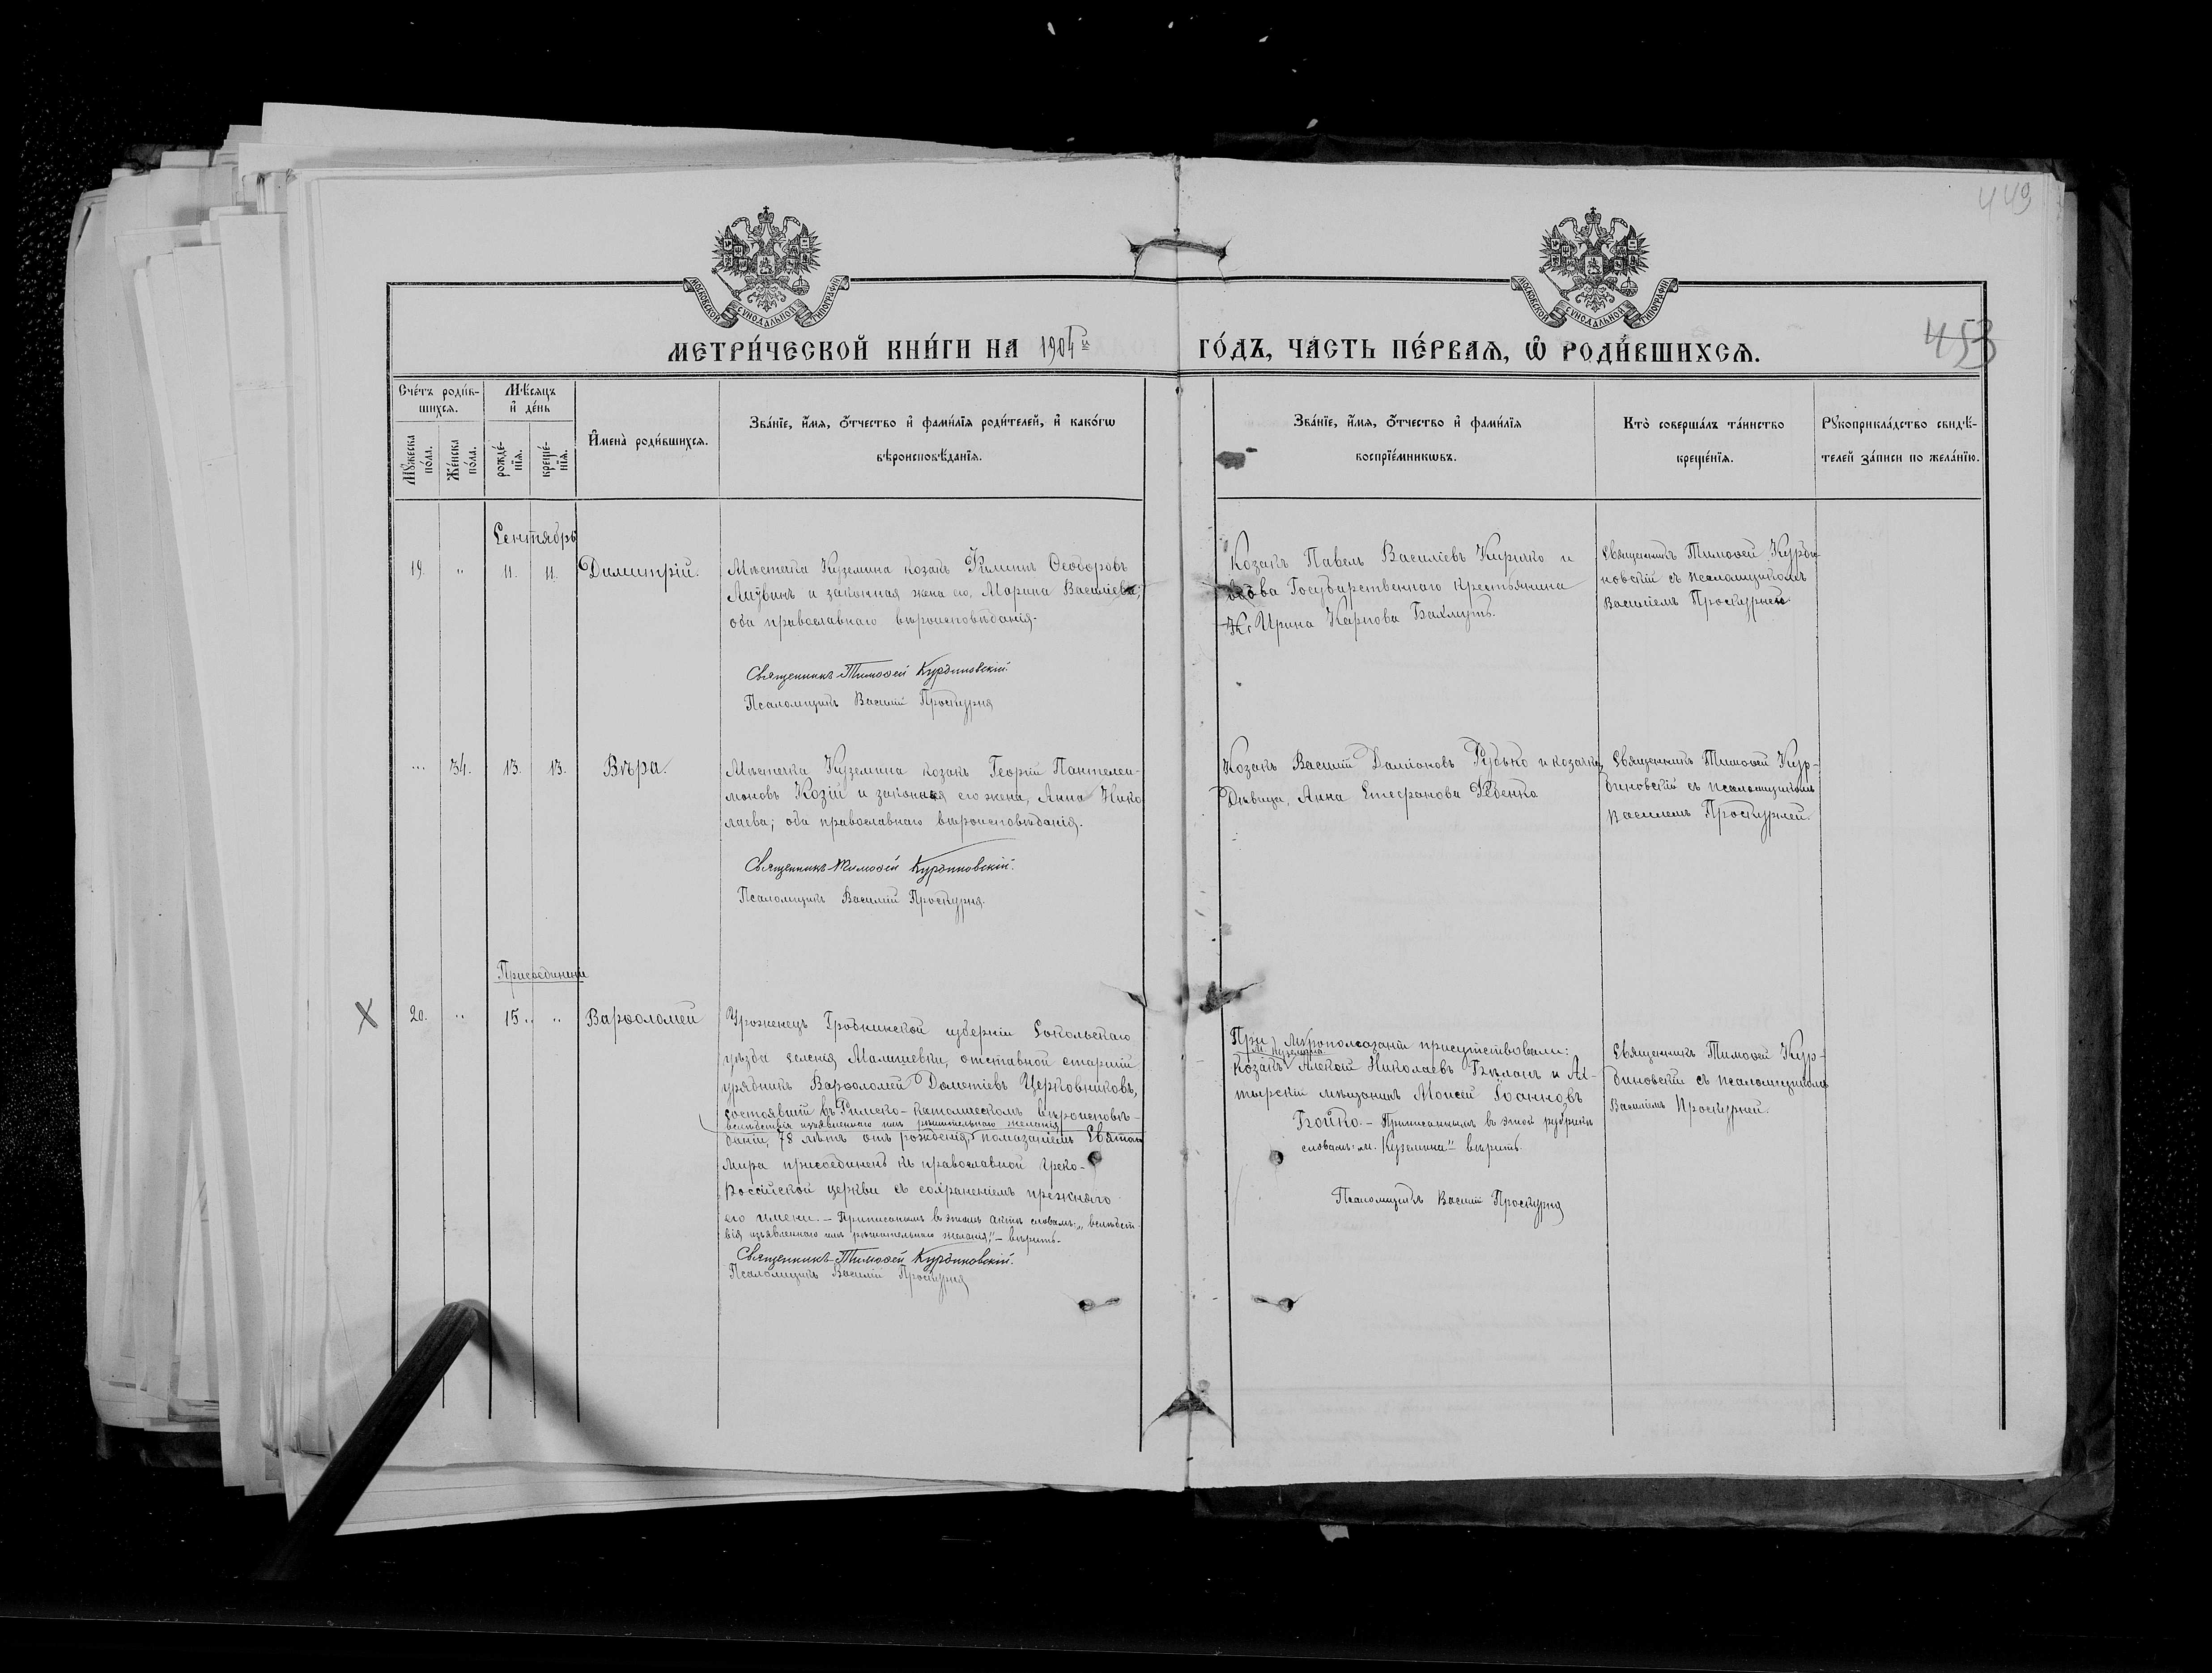 449
МОСКОВСКОЙ СѴНОДАЛЬНОЙ ТИПОГРАФІИ
МОСКОВСКОЙ СѴНОДАЛЬНОЙ ТИПОГРАФІИ
453
МЕТРИ́ЧЕСКОЙ КНИ́ГИ НА 1904й ГО́ДЪ, ЧА́СТЬ ПЕ́РВАѦ, Ѡ҆ РОДИ́ВШИХСѦ.
Сче́тъ роди́в-
шихсѧ.
Мѣ́сѧцъ
и҆ де́нь
Мꙋ́жеска
по́ла.
Же́нска
по́ла.
рожде́-
нїѧ.
креще́-
нїѧ.
И҆мена̀ роди́вшихсѧ.
Зва́нїе, и҆́мѧ, ѻ҆́тчество и҆ фами́лїѧ роди́телей, и҆ како́гѡ
вѣроисповѣ́данїѧ.
Зва́нїе, и҆́мѧ, ѻ҆́тчество и҆ фами́лїѧ
воспрїе́мникѡвъ.
Кто̀ соверша́лъ та́инство
креще́нїѧ.
Рꙋкоприкла́дство свидѣ́-
телей за́писи по жела́нїю.
Сентябрь
19. " 11. 11. Димитрій.
Мѣстечка Куземина козакъ Филиппъ Ѳеодоровъ
и законная жена его, Марина Василіева;
оба православнаго вѣроисповѣданія.
Священникъ Тимоѳей Курдиновскій.
Псаломщикъ Василій Проскурня
Козакъ Павелъ Василіевъ Киричко и
вдова Государственнаго крестьянина
Ирина Карпова Бахмутъ.
Священникъ Тимоѳей Курди-
новскій съ псаломщикомъ
Василіемъ Проскурней
" 34. 13. 13. Вѣра.
Мѣстечка Куземина козакъ Георгій Пантелеи-
моновъ Козій и законная его жена, Анна Нико-
лаева; оба православнаго вѣроисповѣданія.
Священникъ Тимоѳей Курдиновскій.
Псаломщикъ Василій Проскурня.
Козакъ Василій Даміоновъ Рудько и козачка
Дѣвица, Анна Стефанова Реденко
Священникъ Тимоѳей Кур-
диновскій съ псаломщикомъ
Василіемъ Проскурней.
Присоединеніе
X 20. " 15. " Варѳоломей
Уроженецъ Гродненской губерніи Сокольскаго
уѣзда селенія Малишевки, отставной старшій
урядникъ Варѳоломей Дометіевъ Церковниковъ,
состоявшій въ Римско-католическомъ вѣроисповѣ-
вслѣдствія изъявленнаго имъ рѣшительнаго желанія
даніи, 78 лѣтъ отъ рожденія, помазаніемъ Святаго
мира присоединенъ къ православной Греко-
Россійской церкви съ сохраненіемъ прежняго
его имени. – Приписаннымъ въ этомъ актѣ словамъ: „вслѣдст-
вія изъявленнаго имъ рѣшительнаго желанія," – вѣрить.
Священникъ Тимоѳей Курдиновскій.
Псаломщикъ Василій Проскурня
При мѵропомазаніи присутствовали:
м. Куземина
козакъ Алексій Николаевъ Бѣланъ и Ах-
тырскій мѣщанинъ Моисей Іоанновъ
Бойко. – Приписаннымъ въ этой рубрикѣ
словамъ: „м. Куземина" вѣрить.
Псаломщикъ Василій Проскурня
Священникъ Тимоѳей Кур-
диновскій съ псаломщикомъ
Василіемъ Проскурней.